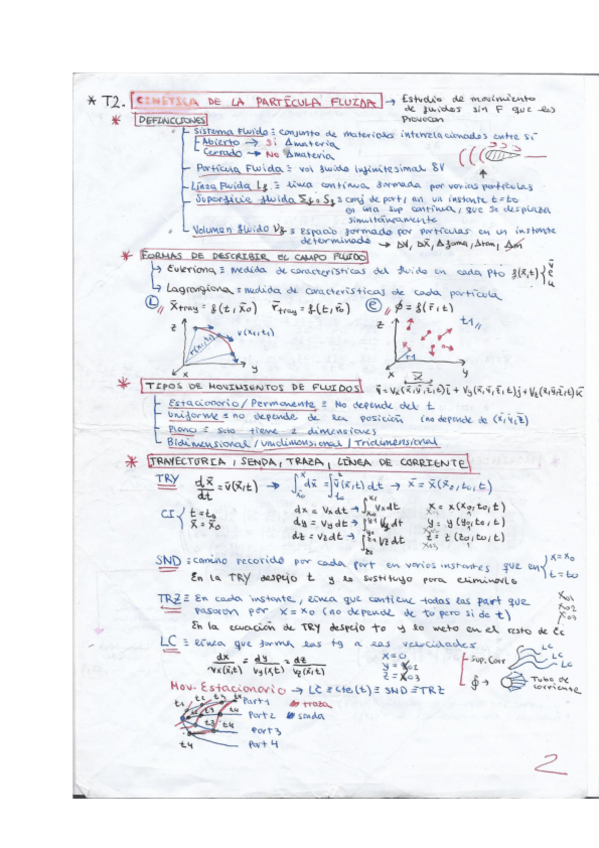 * T2. CINÉTICA DE LA PARTÍCULA FLUIDA → Estudio de movimiento
de fluidos sin F que los
provocan
* DEFINICIONES
Sistema Fluido ≡ conjunto de materiales interrelacionados entre sí
Abierto → Sí Δmateria
Cerrado → No Δmateria
Partícula Fluida ≡ vol fluido infinitesimal δV
Línea Fluida Lf ≡ línea continua formada por varias partículas
Superficie fluida Σf = Sf ≡ conj de part, en un instante t=to
es una sup continua, que se desplaza
simultáneamente
Volumen fluido Vf ≡ Espacio formado por partículas en un instante
determinado
* FORMAS DE DESCRIBIR EL CAMPO FLUIDO
→ Euleriana ≡ Medida de características del fluido en cada pto f(x̄,t)
→ Lagrangiana ≡ medida de características de cada partícula
(L) // x̄tray = f(t, x̄o) r̄tray = f(t, r̄o) (e) // ϕ = f(r̄, t)
z v(x1,t1) z t1 //
x y x y
* TIPOS DE MOVIMIENTOS DE FLUIDOS
Estacionario / Permanente ≡ No depende del t
Uniforme ≡ no depende de la posición (no depende de (x̄,ȳ,z̄))
Plano ≡ solo tiene 2 dimensiones
Bidimensional / Unidimensional / Tridimensional
* TRAYECTORIA, SENDA, TRAZA, LÍNEA DE CORRIENTE
TRY dx̄/dt = v̄(x̄,t) → ∫dx̄ = ∫v̄(x̄,t)dt → x̄ = x̄(x̄o,to,t)
CI { t=to x̄=x̄o
dx = Vxdt → ∫Vxdt x = x(xo,to,t)
dy = Vydt → ∫Vydt y = y(yo,to,t)
dz = Vzdt → ∫Vzdt z = z(zo,to,t)
SND ≡ camino recorrido por cada part en varios instantes que en { x=xo t=to
En la TRY despejo t y lo sustituyo para eliminarlo
TRZ ≡ En cada instante, línea que contiene todas las part que
pasaron por x=xo (no depende de to pero sí de t)
xo1
xo2
xo3
En la ecuación de TRY despejo to y lo meto en el resto de Ec
LC ≡ línea que forma las tg a las velocidades
dx/Vx(x̄,t) = dy/Vy(x̄,t) = dz/Vz(x̄,t)
Sup. Corr LC LC LC
Tubo de
corriente
Mov. Estacionario → LC ≡ cte(t) ≡ SND ≡ TRZ
Part 1 traza
Part 2 senda
Part 3
t4 Part 4
2